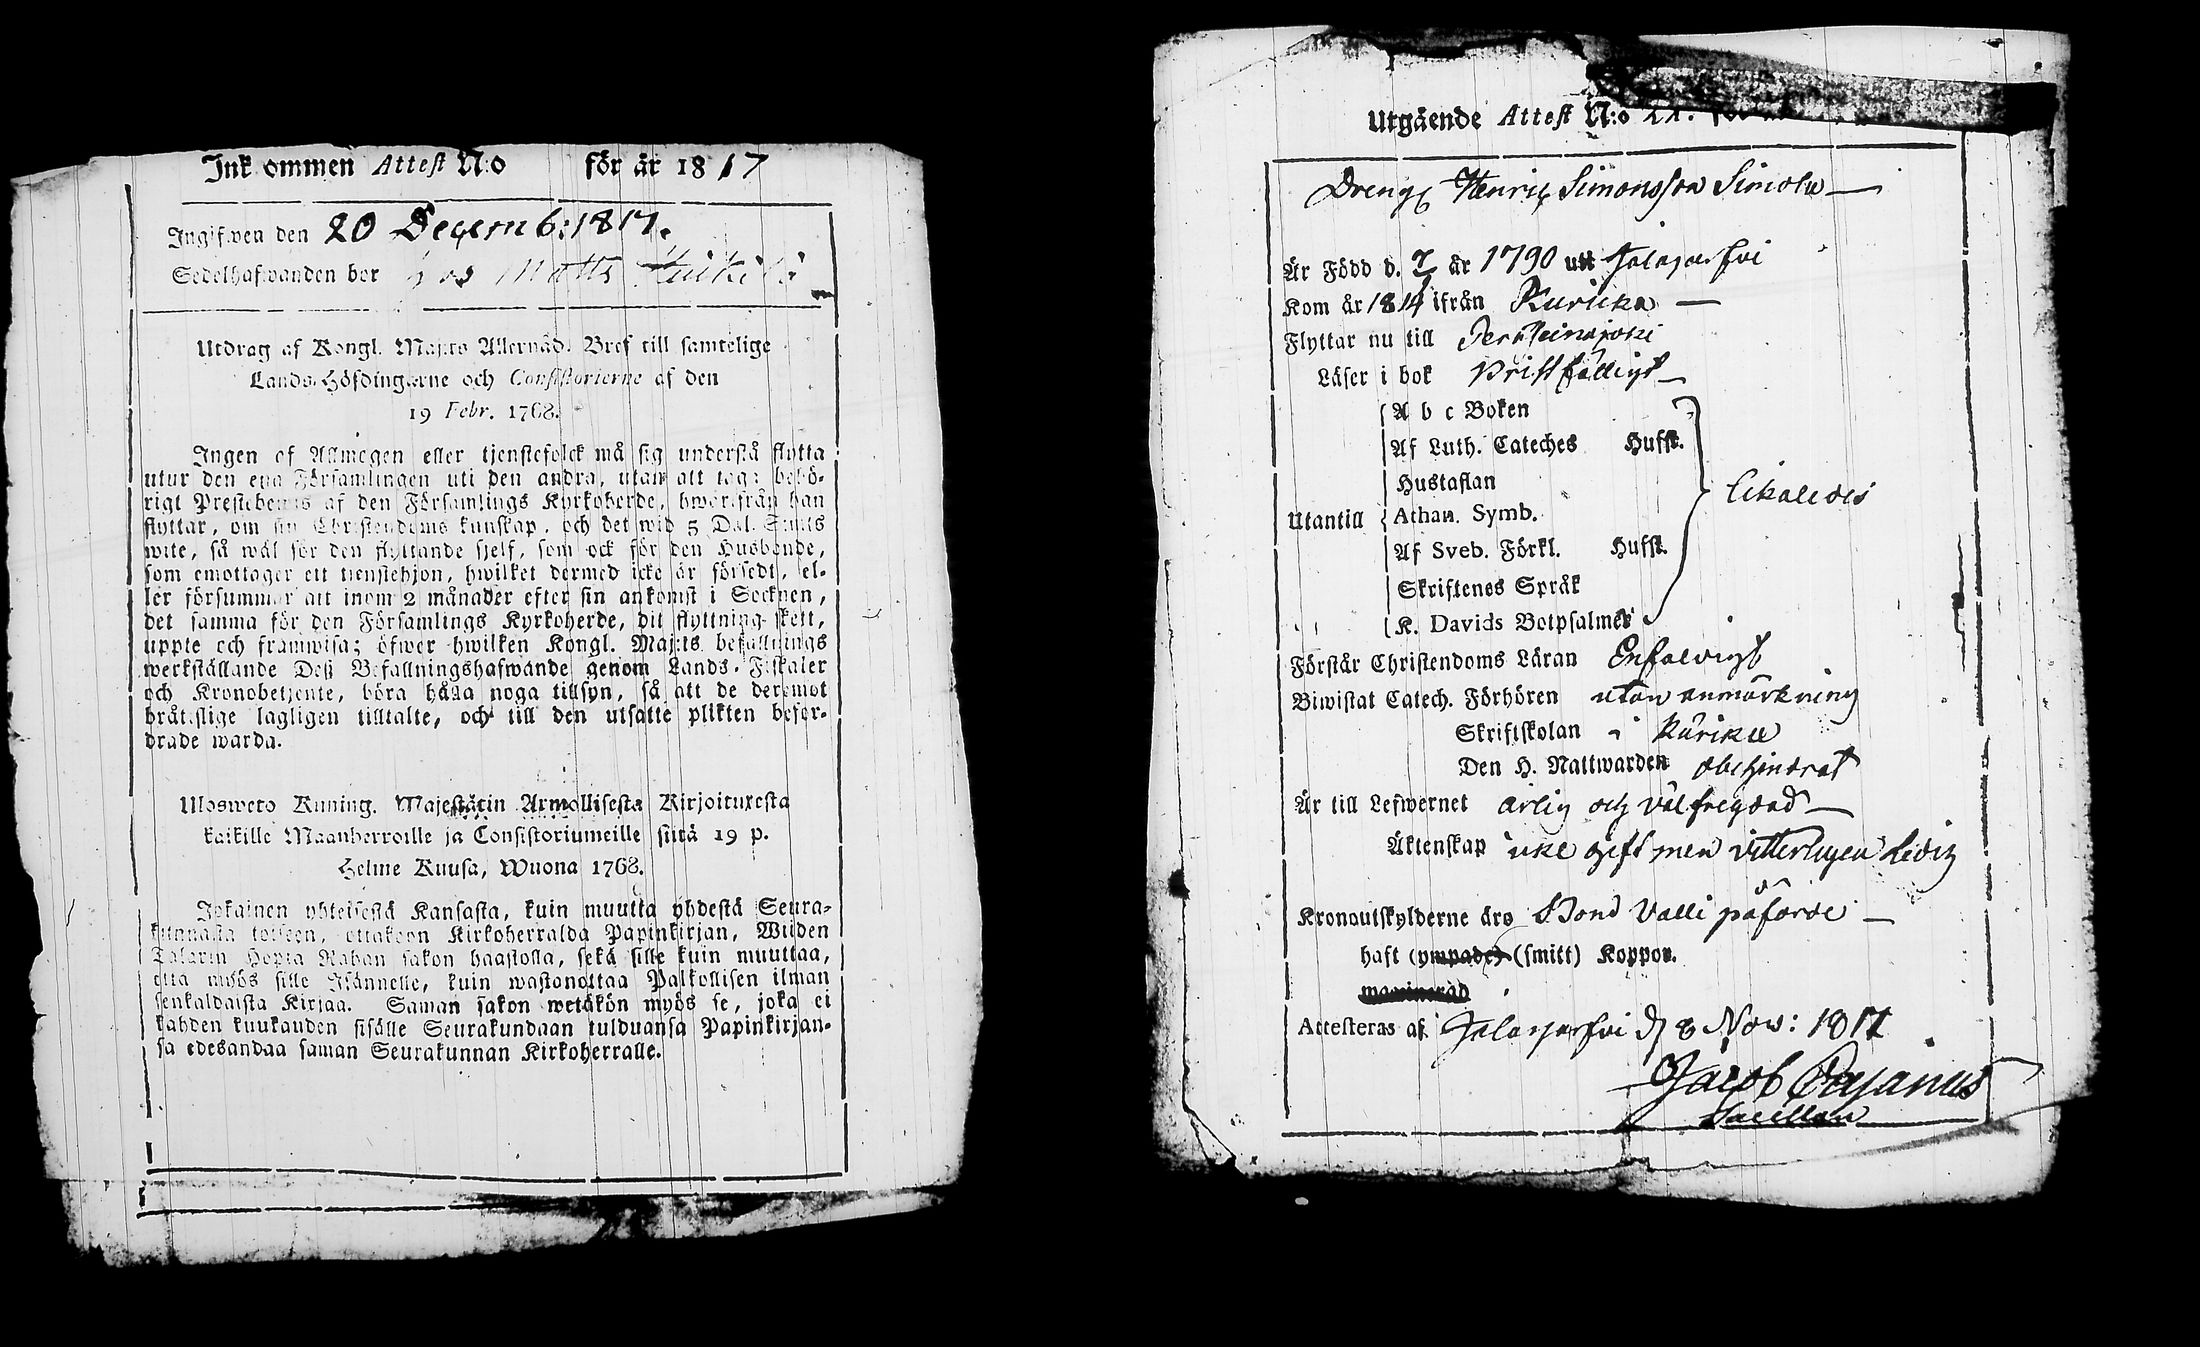 Inkommen Attest N:o för år 1817
Ingifwen den 20 Decemb: 1817.
Sedelhafwanden bor hos Matts
Utdrag af Kongl. Maj:ts Allernåd. Bref till samtelige
Lands-Höfdingarne och Consistorierne af den
19 Febr. 1768.
Ingen af Allmogen eller tjenstefolck må sig understå flytta
utur den ena Församlingen uti den andra, utan att taga behö-
rigt Prestebewis af den Församlings Kyrkoherde, hwarifrån han
flyttar, om sin Christendoms kunskap, och det wid 5 Dal. Smts
wite, så wäl för den flyttande sjelf, som ock för den Husbonde,
som emottager ett tienstehjon, hwilket dermed icke är försedt, el-
ler försummar att inom 2 månader efter sin ankomst i Socknen,
det samma för den Församlings Kyrkoherde, dit flyttning skett,
uppte och framwisa; öfwer hwilken Kongl. Maj:ts befallnings
werkställande Deß Befallningshafwande genom Lands-Fiskaler
och Kronobetjente, böra hålla noga tillsyn, så att de deremot
bråtslige lagligen tilltalte, och till den utsatte plikten befor-
drade warda.
Ulosweto Kuning. Majestätin Armollisesta Kirjoituxesta
kaikille Maanherroille ja Consistoriumeille siitä 19 p.
Helme Kuusa, Wuona 1768.
Jokainen yhteisestä Kansasta, kuin muutta yhdestä Seura-
kunnasta toiseen, ottakoon Kirkoherralda Papinkirjan, Wiiden
Talarin Hopia Rahan sakon haastolla, sekä sille kuin muuttaa,
että myös sille Isännelle, kuin wastanottaa Palkollisen ilman
senkaldaista Kirjaa. Saman sakon wetäkön myös se, joka ei
kahden kuukauden sisälle Seurakundaan tulduansa Papinkirjan-
sa edesandaa saman Seurakunnan Kirkoherralle.
Utgående Attest N:o
Dreng Henric Simonsson Simola
Är Född d. 7 år 1790 uti Jalasjärfvi
Kom år 1814 ifrån Kuricka
Flyttar nu till Peräseinäjoki
Läser i bok Pristfälligt
A b c Boken
Af Luth. Cateches Hufst.
Hustaflan
Utantill Athan. Symb. likaledes
Af Sveb. Förkl. Hufst.
Skriftenes Språk
K. Davids Botpsalmer
Förstår Christendoms Läran Enfaldigt
Biwistat Catech. Förhören utan anmärkning
Skriftskolan i Kurika
Den H. Nattwarden obehindrat
Är till Lefwernet ärlig och välfregdad
Äktenskap icke gift men vitterligen Ledig
Kronoutskylderne äro Bond Valli påförde
haft (ympade) (smitt) Koppor.
Attesteras af Jalasjärfvi d 8 Nov: 1817
Jacob Pajanus
Sacellan